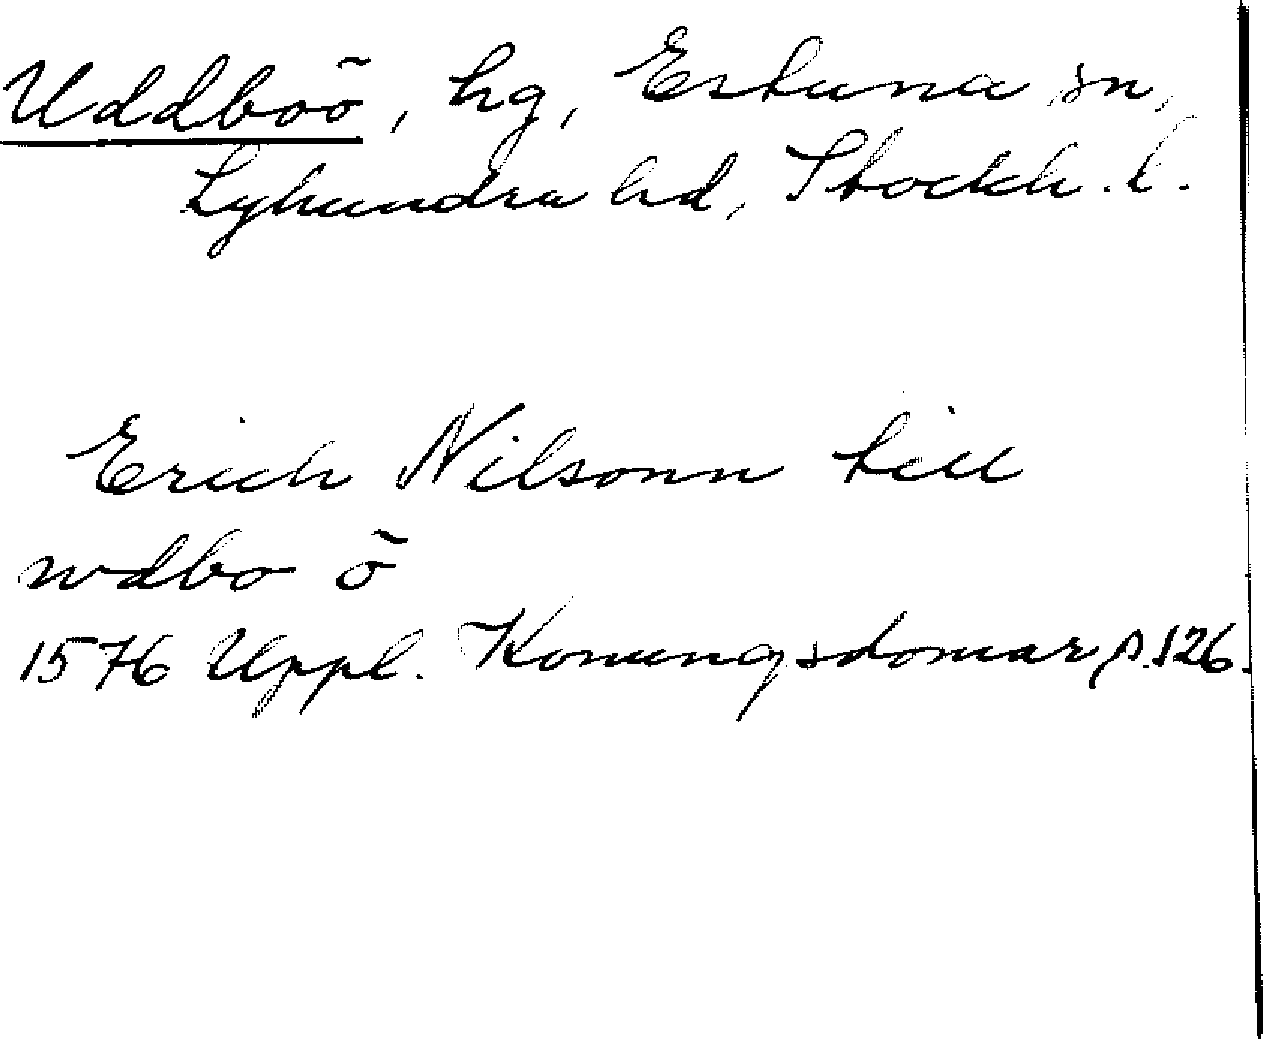 Uddboö, hg, Estuna sn,
Lyhundra hd, Stockh. l.
Erich Nilsonn till
wdbo ö
1576 Uppl. Konungsdomar s. 126.